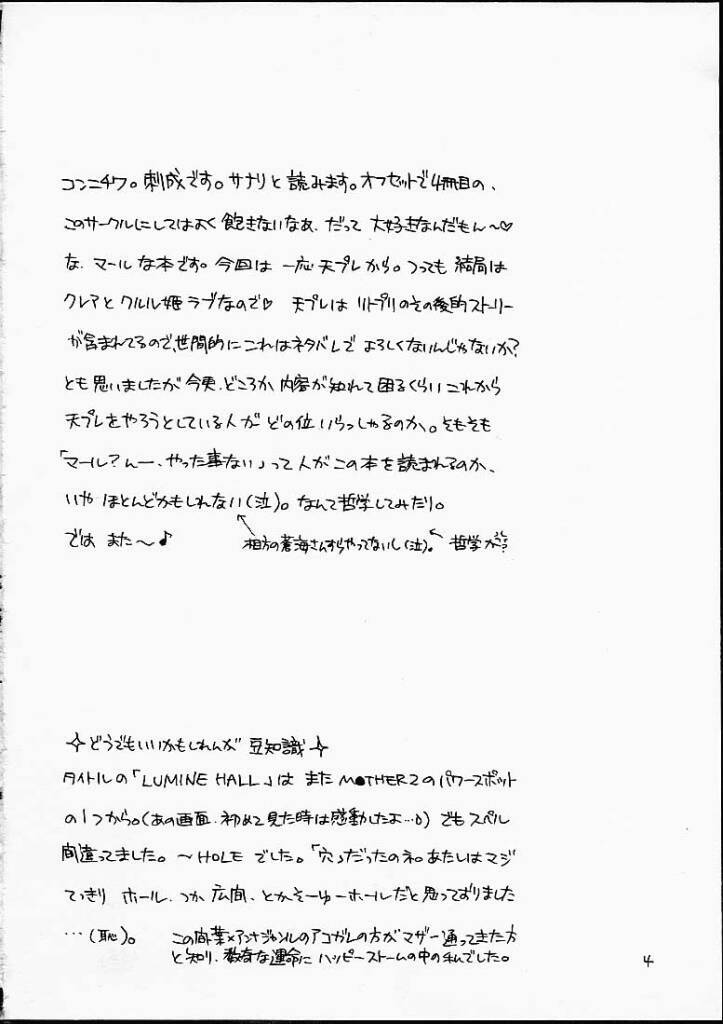 コンニチワ。刺成です。サナリと読みます。オフセットで4冊目の、
このサークルにしてはよく飽きないなあ、だって大好きなんだもん〜♡
な、マールな本です。今回は一応天プレから。つっても結局は
クレアとクルル姫ラブなので♡ 天プレはリトプリのその後的ストーリー
が含まれてるので、世間的にこれはネタバレでよろしくないんじゃないか?
とも思いましたが今更、どころか内容が知れて困るくらいこれから
天プレをやろうとしている人がどの位いらっしゃるのか。そもそも
「マール?んー、やった事ない」って人がこの本を読まれるのか、
いやほとんどかもしれない(泣)。なんて哲学してみたり。
ではまた〜♪
相方の蒼海さんすらやってないし(泣)。
哲学か?
✧どうでもいいかもしれんが豆知識✧
タイトルの「LUMINE HALL」はまたMOTHER2のパワースポット
の1つから。(あの画面、初めて見た時は感動したよ…) でもスペル
間違ってました。〜HOLEでした。「穴」だったのネ。あたしはマジ
てっきりホール、つか広間、とかそーゆーホールだと思っておりました
…(恥)。
このアンナジャンルのアコガレの方がマザー通ってきた方
と知り、数奇な運命にハッピーストームの中の私でした。
4